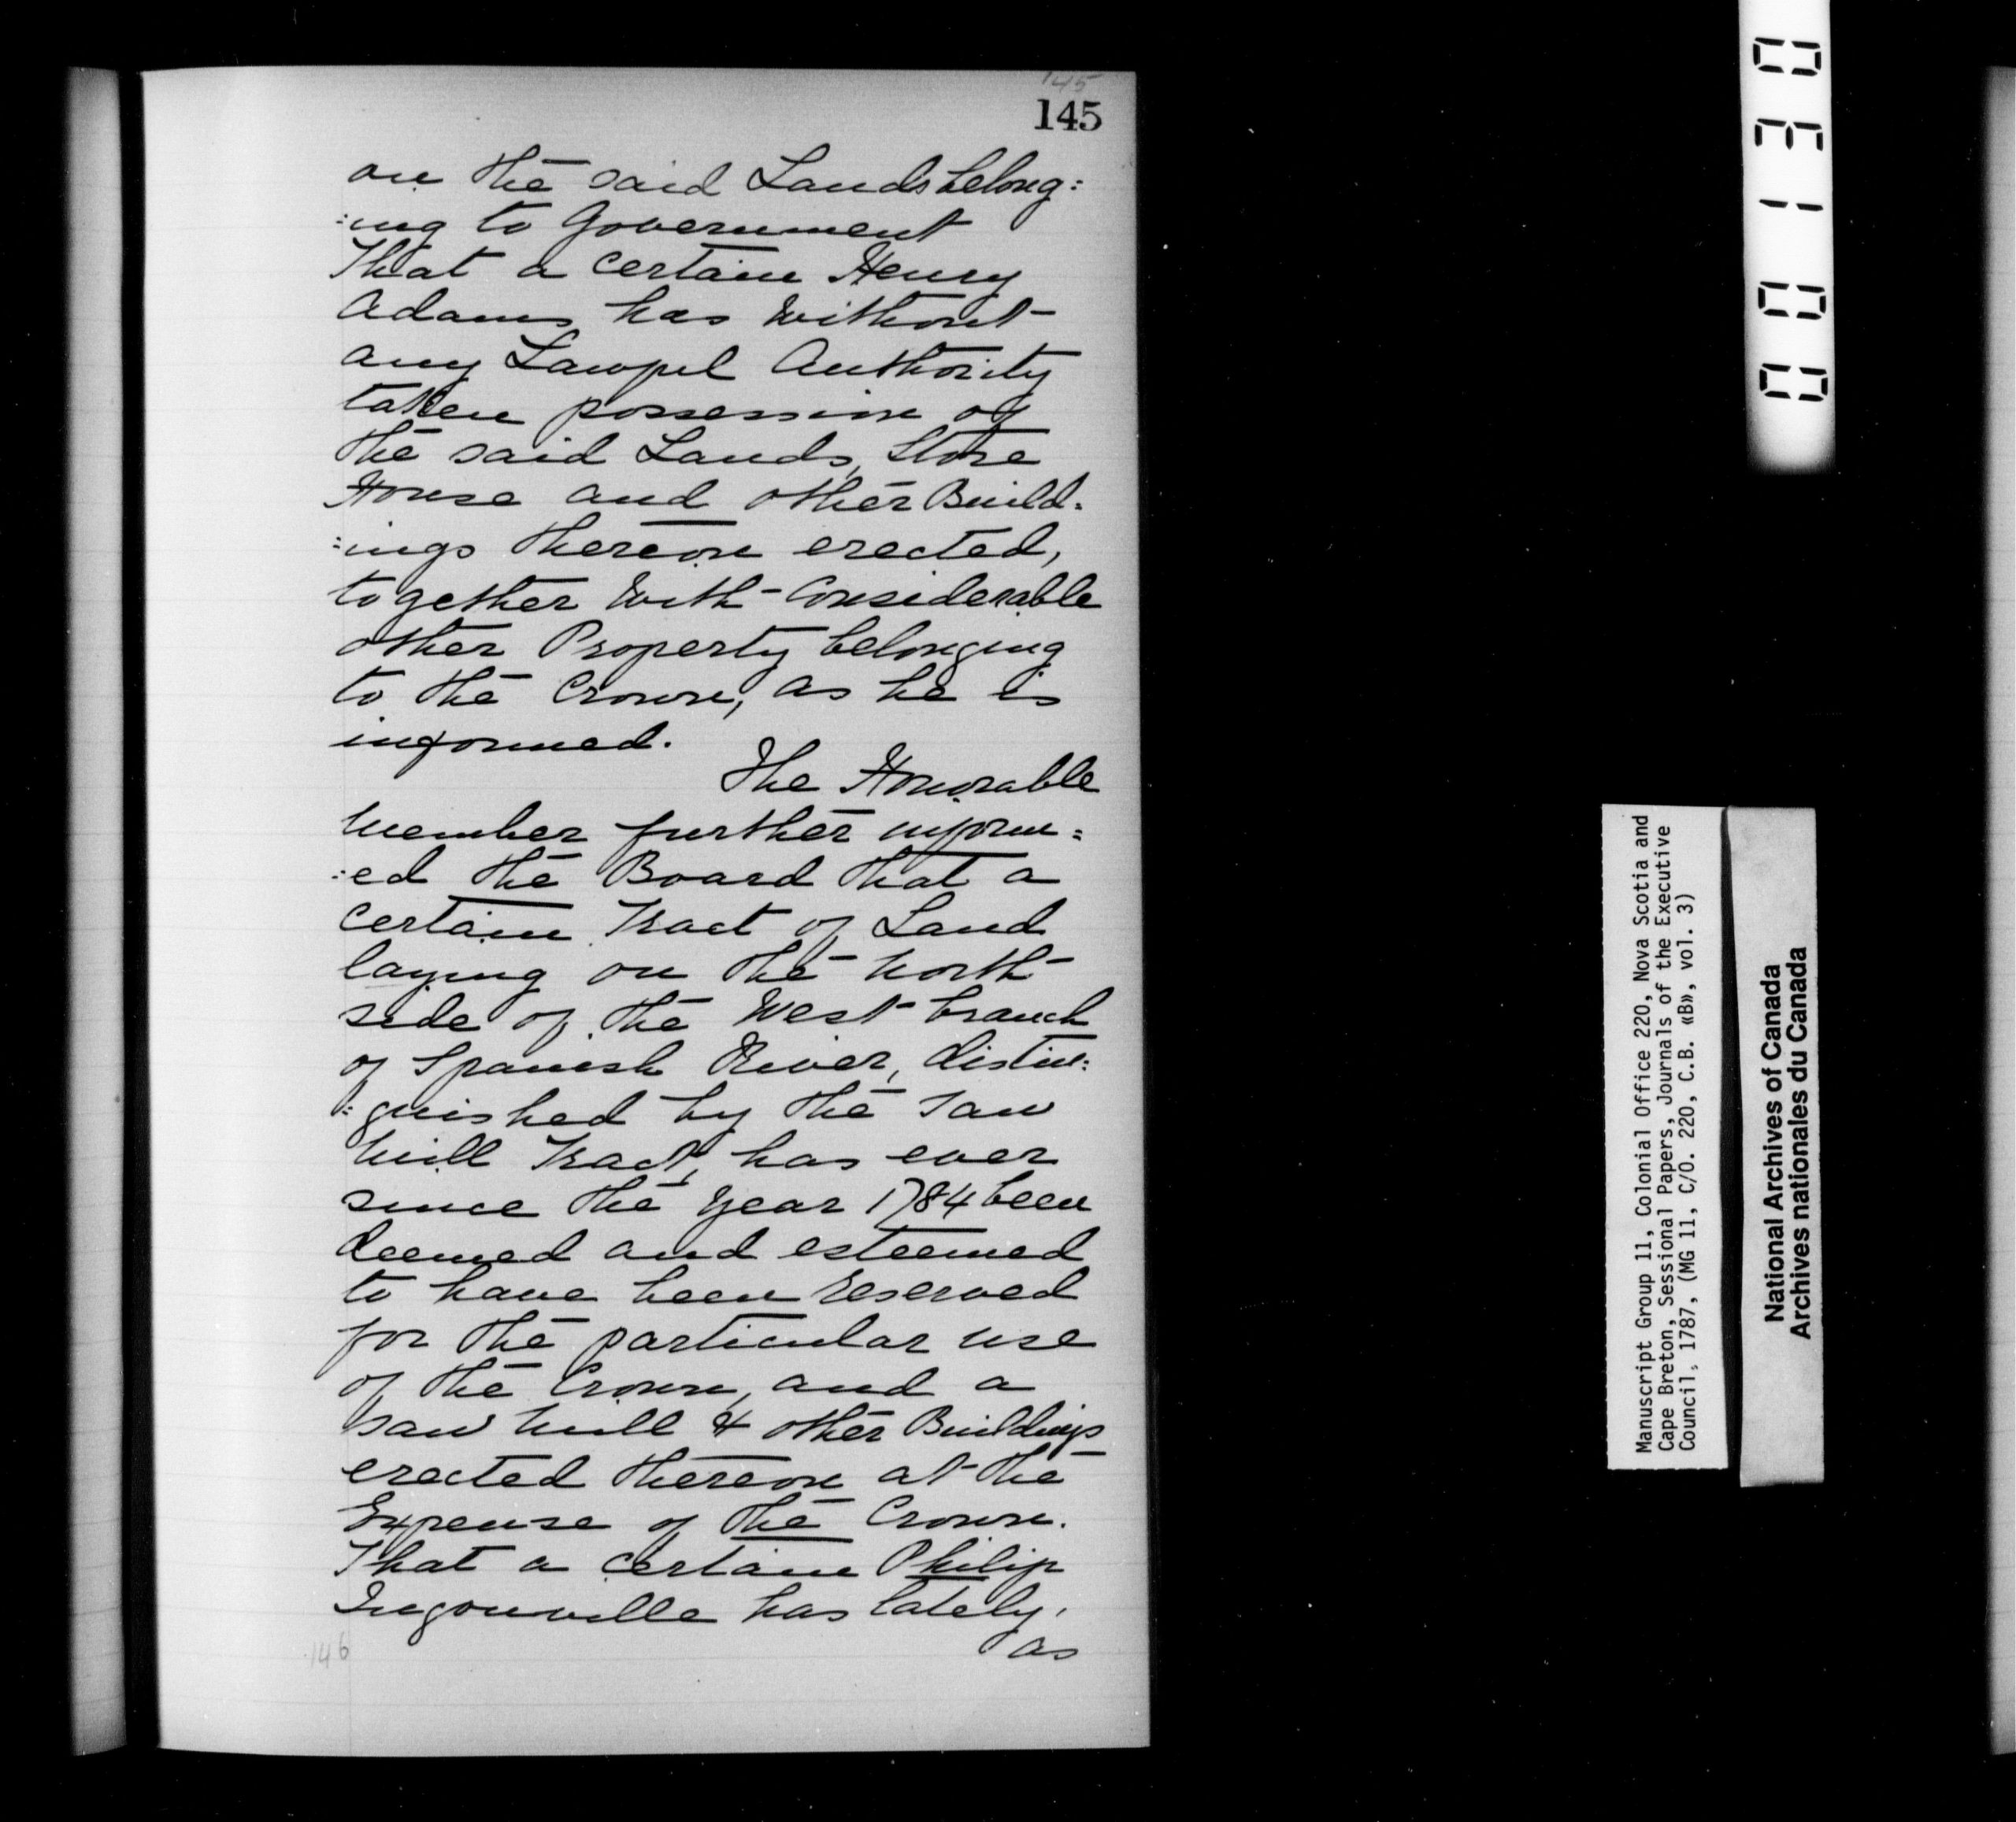 145
145
on the said Lands belong:
:ing to Government
That a certain Henry
Adams has without
any Lawful Authority
taken possession of
the said Lands, Store
House and other Build:
:ings thereon erected,
together With Considerable
other Property belonging
to the Crown, as he is
informed.
The Honorable
Member further inform:
:ed the Board that a
certain Tract of Land
laying on the North
side of the West branch
of Spanish River, distin:
:guished by the Saw
Mill Tract, has ever
since the Year 1784 been
deemed and esteemed
to have been reserved
for the particular use
of the Crown, and a
Saw Mill & other Buildings
erected thereon at the
Expense of the Crown.
That a certain Philip
Ingouville has lately,
as
146
00130
Manuscript Group 11, Colonial Office 220, Nova Scotia and
Cape Breton, Sessional Papers, Journals of the Executive
Council, 1787, (MG 11, C/O. 220, C.B. «B», vol. 3)
National Archives of Canada
Archives nationales du Canada